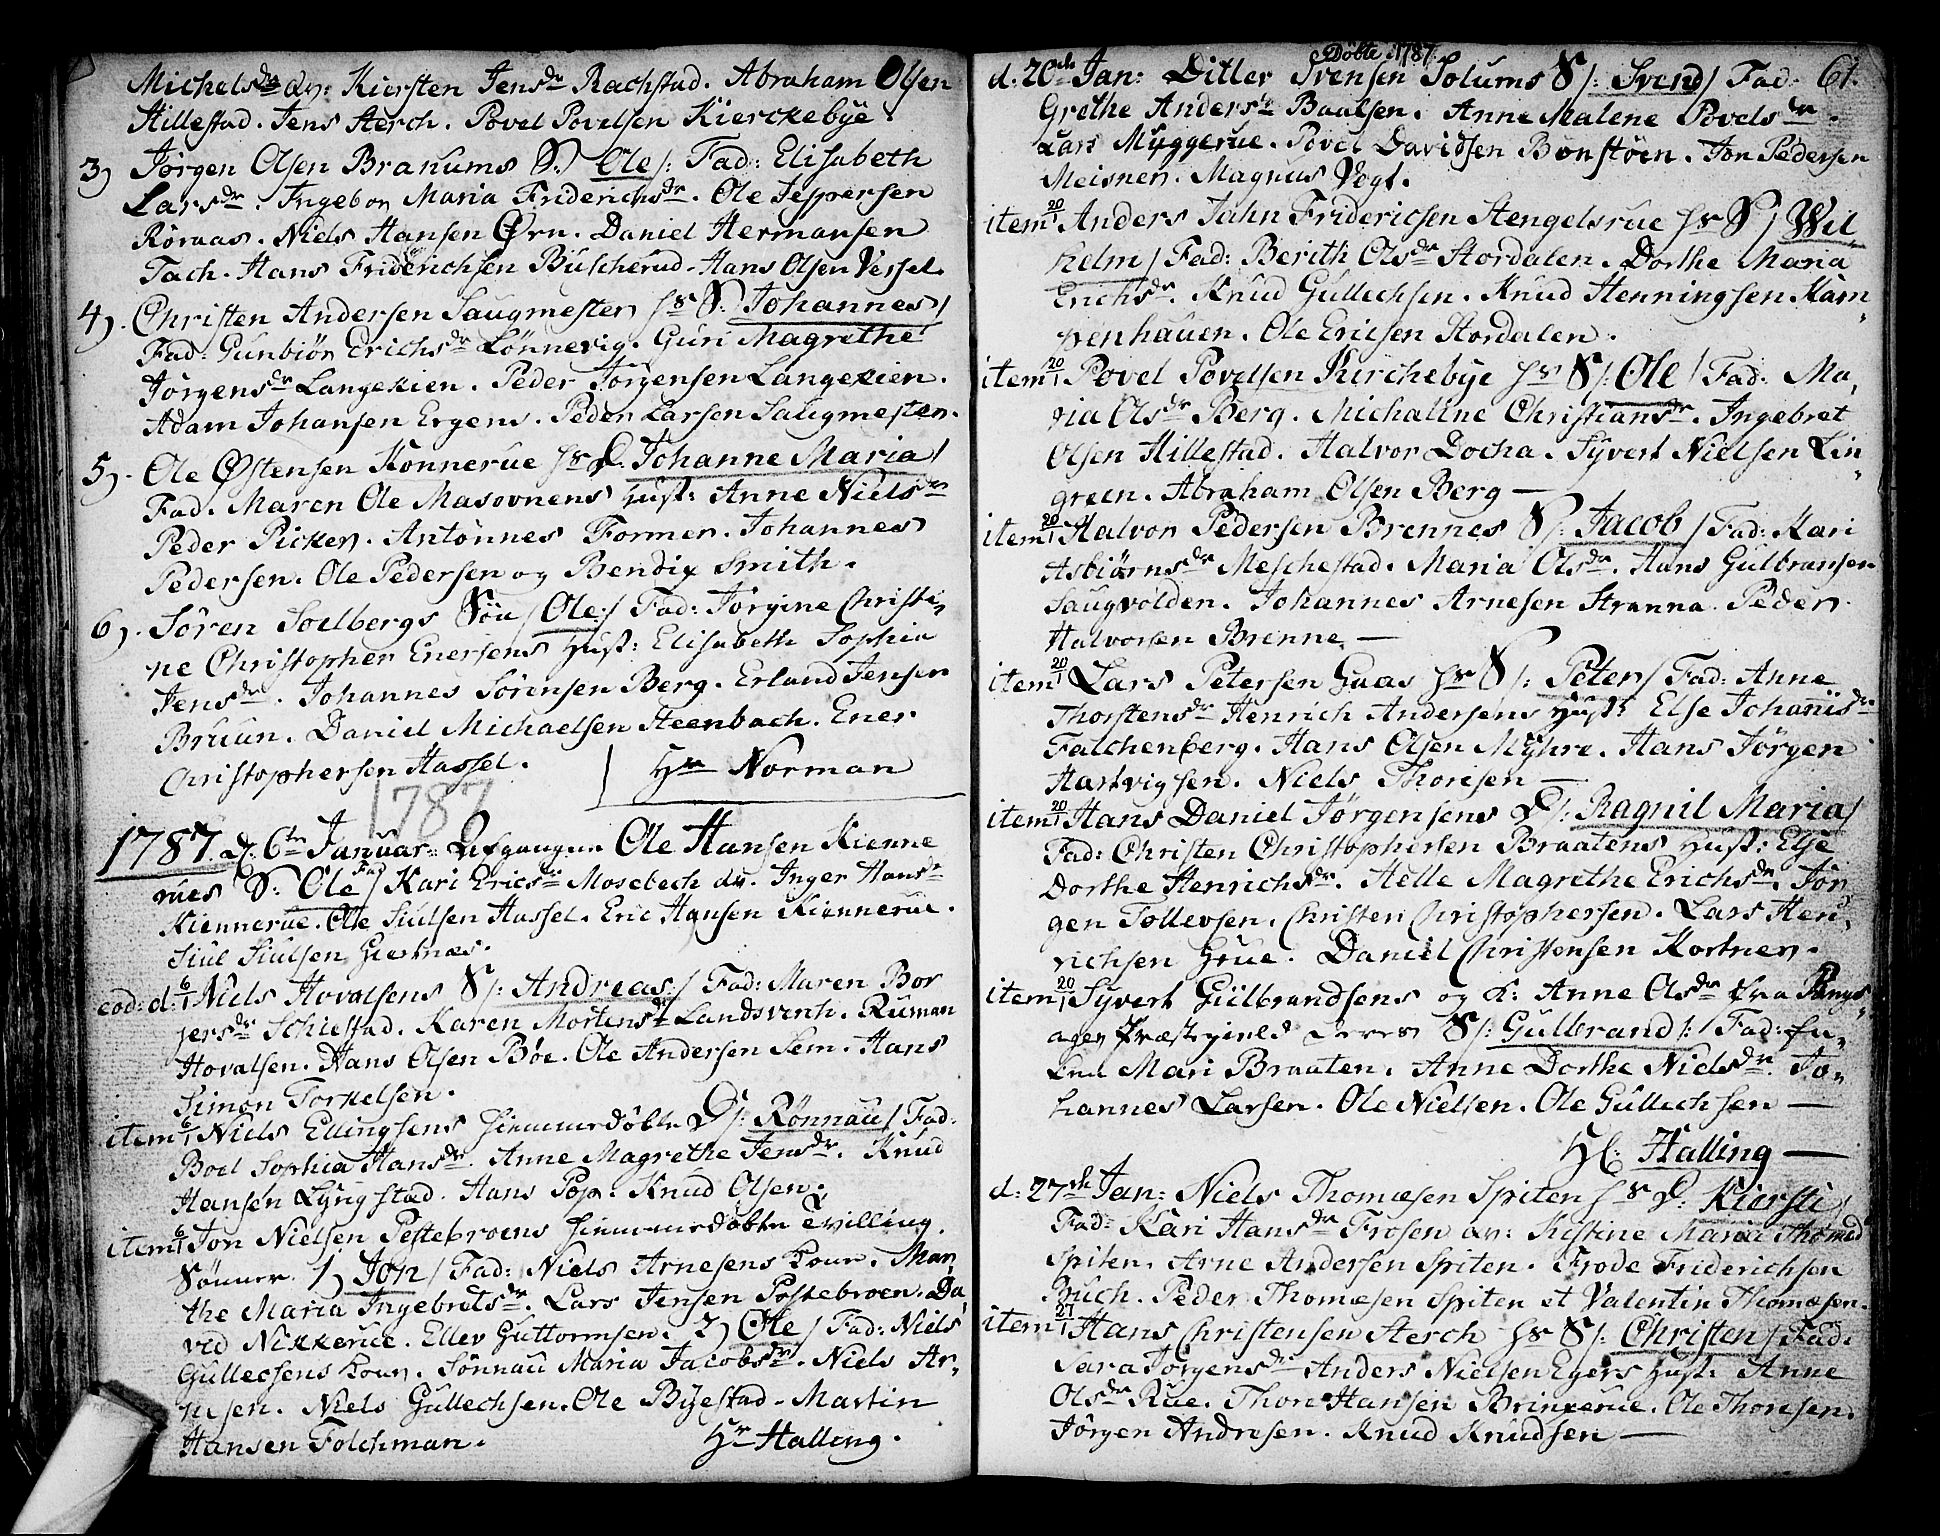 Michelsdr av: Kiersten Jensdr Rachstad. Abraham Olsen
Hillestad. Jens Aerch. Povel Povelsen Kierckebÿe.
3) Jørgen Olsen Branums S: Ole/: Fad: Elisabeth
Larsdr. Ingebor Maria Friderichsdr. Ole Jespersen
Röraas. Niels Hansen Ørn. Daniel Hermansen
Tach. Hans Friderichsen Buscherud. Hans Olsen Vessel.
4). Christen Andersen Saugmester hs S: Johannes/
Fad: Gunbiör Erichsdr Lönnevig. Guri Magrethe
Jörgensdr Langekien. Peder Jörgensen Langekien.
Adam Johansen Ergens. Peder Larsen Saugmester.
5). Ole Østensen Konnerue hs D. Johanne Maria/
Fad. Maren Ole Masovnens Hust: Anne Nielsdr
Peder Picker. Antonnes Former. Johannes
Pedersen. Ole Pedersen og Bendix Smith.
6). Sören Solbergs Sön/Ole:/ Fad: Jörgine Christi,
ne Christopher Enersens Hust: Elisabeth Sophia
Jensdr. Johannes Sörensen Berg. Erland Jensen
Bruun. Daniel Michaelsen Steenbach. Ener
Christophersen Hassel. Hr Norman
1787
1787. D: 6te Januar: Ole Hansen Kienne
rues S: Ole/ Fad Kari Ericsdr Mosebech av. Inger Hansdr
Kiennerue. Ole Siulsen Hassel. Eric Hansen Kiennerue.
Siul Siulsen Giernæs.
eod: d: 6/1 Niels Hovalsens S/: Andreas:/ Fad: Maren Bor
gersdr Schiestad. Karen Mortensdr Landsverch. Ruman
Hovalsen. Hans Olsen Böe. Ole Andersen Sem. Hans
Simon Torkelsen.
item 6/1 Niels Ellingsens hiemmedöbte D/: Rönnau/ Fad:
Boel Sophia Hansdr. Anne Magrethe Jensdr. Knud
Hansen Lÿngstad. Hans Pop. Knud Olsen.
item 6/1 Jon Nielsen Pestebroens hiemmedöbte Tvilling
Sönner. 1) Jon/ Fad: Niels Arnesens Kone. Mar,
the Maria Ingebretsdr. Lars Jensen Postebroen. Da,
vid Nikkerue. Ellev Guttormsen. 2) Ole/ Fad: Niels
Gullecsens Kone. Sönnau Maria Jacobsdr. Niels Ar,
nesen. Niels Gullechsen. Ole Bÿestad. Martin
Hansen Folchman. Hr Halling.
Döbte 1787. 61.
d: 20de Jan: Ditler Svensen Solums S/: Svend/ Fad:
Grethe Andersdr Baalsen. Anne Malene Povelsdr.
Lars Mÿggerue. Povel Davidsen Bonstöen. Jon Pedersen
Meisner. Magnus Vogt.
item 20/1 Anders Jahn Friderichsen Stengelsrue hs S/ Wil,
helm/ Fad: Berith Olsdr Stordalen. Dorthe Maria
Erichsdr. Knud Gullechsen. Knud Henningsen Kam,
penhauen. Ole Ericsen Stordalen.
item 20/1 Povel Povelsen Kirchebÿe hs S/: Ole/ Fad: Ma,
ria Olsdr Berg. Michaline Christiansdr. Ingebret
Olsen Hillestad. Halvor Docha. Sÿvert Nielsen Lin,
green. Abraham Olsen Berg —
item 20/1 Halvor Pedersen Brennes S/: Jacob/ Fad: Kari
Asbiörnsdr Meschestad. Maria Olsdr. Hans Gulbransen
Saugvolden. Johannes Arnesen Stranna. Peder
Halvorsen Brenne. —
item 20/1 Lars Petersen Gaas hs S/: Peter/ Fad: Anne
Thorstensdr Henrich Andersens Hust: Else Johannisdr
Falchenberg. Hans Olsen Mÿhre. Hans Jörgen
Hartvigsen. Niels Thoresen —
item 20/1 Hans Daniel Jörgensens D/: Ragnil Maria/
Fad: Christen Christophersen Braatens Hust: Else
Dorthe Henrichsdr. Helle Magrethe Erichsdr. Jör
gen Tollevsen. Christen Christophersen. Lars Hen,
richsen Grue. Daniel Christensen Kortner.
item 20/1 Sÿvert Gulbrandsens og K: Anne Olsdr fra Ringe,
ager Præstegield deres S/: Gulbrand/: Fad: En,
ken Mari Braaten. Anne Dorthe Nielsdr. Jo,
hannes Larsen. Ole Nielsen. Ole Gullechsen —
Hl: Halling —
d: 27de Jan: Niels Thomesen Spiten hs D: Kiersti/
Fad: Kari Hansdr Frosen av: Kistine Maria Thomæd
Spiten. Arne Andersen Spiten. Frode Friderichsen
Buch. Peder Thomesen Spiten et Valentin Thomæsen.
item 27/1 Hans Christensen Aerch hs S/: Christen/ Fad:
Sara Jörgensdr Anders Nielsen Egers Hust: Anne
Olsdr Rue. Thore Hansen Brinkerue. Ole Thoresen.
Jörgen Andresen. Knud Knudsen —